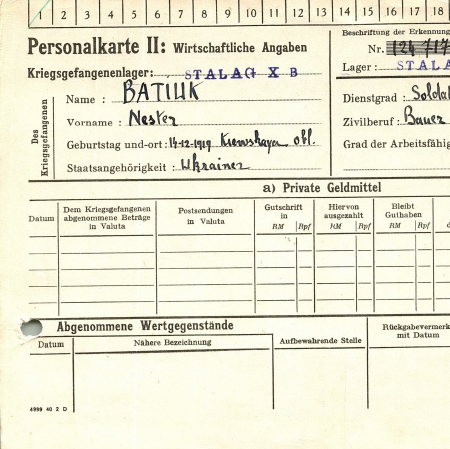 1 2 3 4 5 6 7 8 9 10 11 12 13 14 15 16 17 18
Personalkarte II: Wirtschaftliche Angaben
Beschriftung der Erkennung
Nr. 124717
Kriegsgefangenenlager: STALAG X B
Lager: STALA
Des Kriegsgefangenen
Name: BATIUK
Dienstgrad: Soldat
Vorname: Nester
Zivilberuf: Bauer
Geburtstag und -ort: 14-12-1919 Kiewskaya obl.
Grad der Arbeitsfähig
Staatsangehörigkeit: Ukrainer
a) Private Geldmittel
Datum
Dem Kriegsgefangenen abgenommene Beträge in Valuta
Postsendungen in Valuta
Gutschrift in
RM Rpf
Hiervon ausgezahlt
RM Rpf
Bleibt Guthaben
RM Rpf
d
Abgenommene Wertgegenstände
Rückgabevermerk mit Datum
Datum
Nähere Bezeichnung
Aufbewahrende Stelle
4999 40 2 D